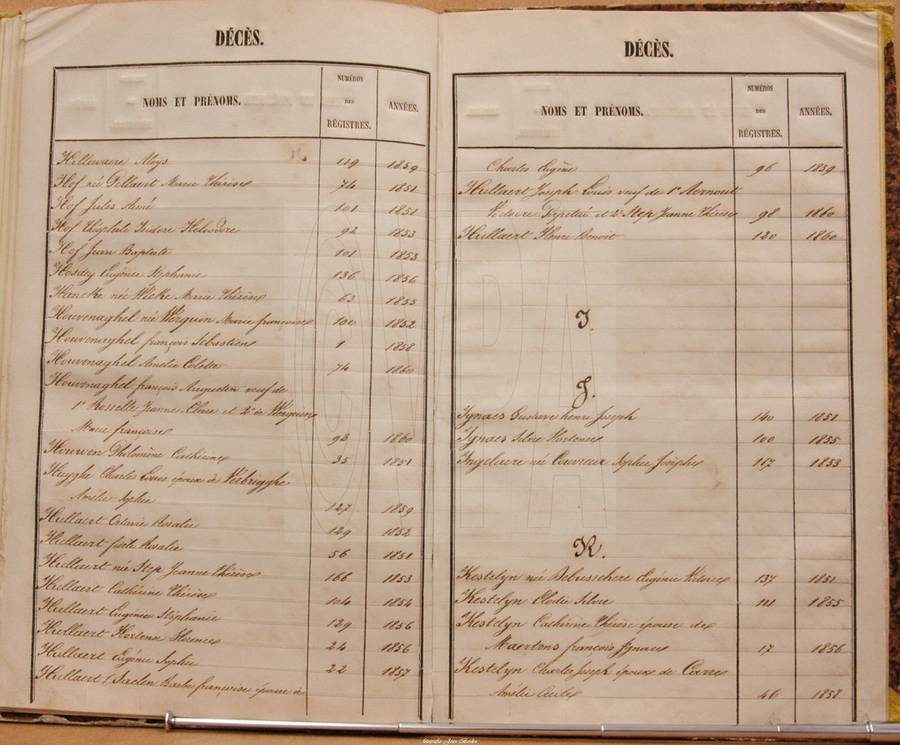 DÉCÈS.
NOMS ET PRÉNOMS.
NUMÉROS
DES
RÉGISTRES.
ANNÉES.
Hillewaere Aloys 119 1859
Hof née Dellaert Marie Thérèse 74 1851
Hof Jules Aimé 101 1851
Hof Théophile Isidore Héliodore 92 1853
Hof Jean Baptiste 101 1853
Hosdey Eugénie Stéphanie 136 1856
Hancke née Wicke Marie Thérèse 63 1855
Houvenaghel née Werquin Marie françoise 100 1852
Houvenaghel françois Sébastien 1 1858
Houvenaghel Amélie Colette 74 1860
Houvenaghel françois Augustin veuf de
1° Rosselle Jeanne Claire et 2° de Werquin
Marie françoise 93 1860
Houwen Philomène Catherine 35 1851
Huyghe Charles Louis époux de Verbrugghe
Amélie Sophie 127 1859
Hullaert Octavie Rosalie 129 1852
Hullaert Rosalie 56 1851
Hullaert née Step Jeanne Thérèse 166 1853
Hullaert Catherine Thérèse 104 1854
Hullaert Eugénie Stéphanie 129 1856
Hullaert Hortense Florence 24 1856
Hullaert Eugénie Sophie 22 1857
Hullaert Barbe françoise épouse de
DÉCÈS.
NOMS ET PRÉNOMS.
NUMÉROS
DES
RÉGISTRES.
ANNÉES.
Charles Eugène 96 1859
Hullaert Joseph Louis veuf de 1° Aernout
Victoire et 2° Step Jeanne Thérèse 98 1860
Hullaert Henri Benoit 120 1860
I.
J.
Ignace Gustave henri Joseph 140 1851
Ignace Silvie Hortense 100 1855
Ingelaere née Couvreur Sophie Josèphe 117 1853
K.
Kestelyn née Debusschere Eugénie Victoire 137 1851
Kestelyn Elodie Silvie 111 1855
Kestelyn Catherine Thérèse épouse de
Maertens françois Ignace 17 1856
Kestelyn Charles Joseph époux de Carre
Amélie Cécile 46 1858